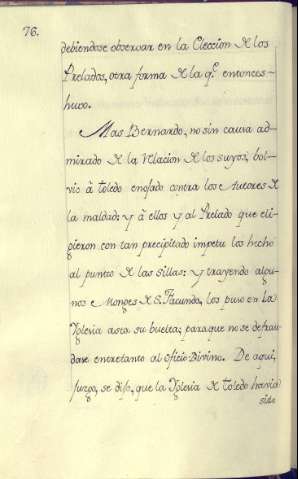 76.
debiendose observar en la Eleccion de los
Prelados, otra forma de la q.e entonces
huvo.
Mas Bernardo, no sin causa ad-
mirado de la relacion de los suyos, bol-
vio à toledo enojado contra los Autores de
la maldad: y à ellos y al Prelado que eli-
gieron con tan precipitado impetu los hechó
al punto de las sillas: y trayendo algu-
nos Monges de S. Facundo, los puso en la
Yglesia asta su buelta; para que no se defrau-
dase entretanto al oficio Divino. De aqui,
juzgo, se dijo, que la Yglesia de toledo havia
sido